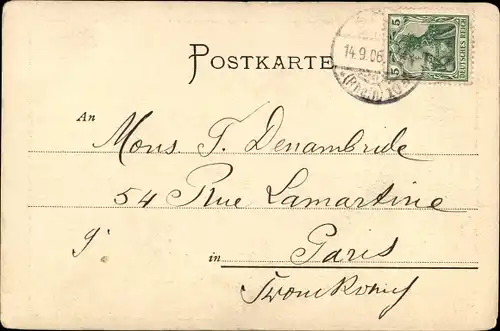 POSTKARTE
5 5
DEUTSCHES REICH
14.9.06
(Rhein)
An
Mons. T. Denambride
54 Rue Lamartine
in Paris